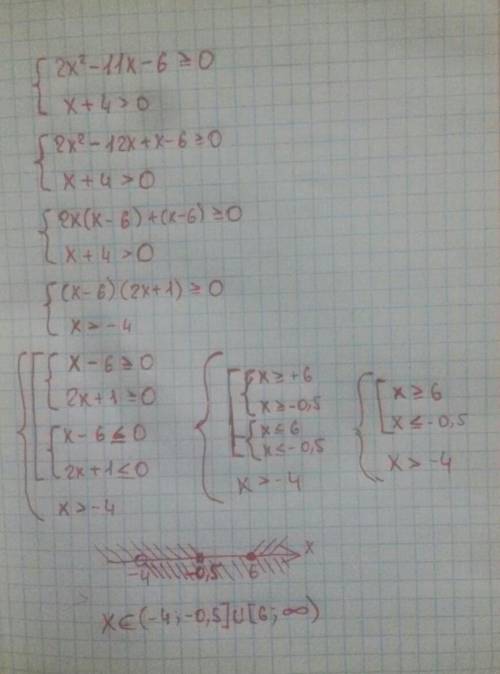 2x² - 11x - 6 ≥ 0
x + 4 > 0
2x² - 12x + x - 6 ≥ 0
x + 4 > 0
2x(x - 6) + (x - 6) ≥ 0
x + 4 > 0
(x - 6)(2x + 1) ≥ 0
x > -4
x - 6 ≥ 0
2x + 1 ≥ 0
x - 6 ≤ 0
2x + 1 ≤ 0
x > -4
x ≥ +6
x ≥ -0,5
x ≤ 6
x ≤ -0,5
x > -4
x ≥ 6
x ≤ -0,5
x > -4
-4 -0,5 6 x
x ∈ (-4; -0,5] ∪ [6; ∞)